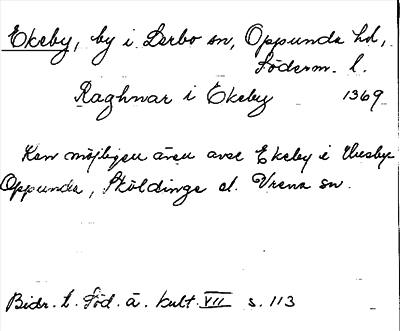 Ekeby, by i Lerbo sn, Oppunda hd,
Söderm. l.
Raghnar i Ekeby 1369
Kan möjligen även avse Ekeby i Husby-
Oppunda, Sköldinge el. Vrena sn.
Bidr. t. Söd. ä. kult. VII s. 113